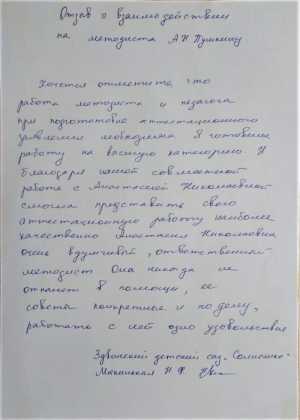 Отзыв о взаимодействии
на методиста А Н Пушкину
Хочется отметить что
работа методиста и педагога
при подготовке аттестационного
заявления необходима Я готовила
работу на высшую категорию. И
благодаря нашей совместной
работе с Анастасией Николаевной
смогла представить свою
аттестационную работу наиболее
качественно Анастасия Николаевна
очень вдумчивый, ответственный
методист Она никогда не
откажет в помощи, ее
советы конкретные и по делу,
работать с ней одно удовольствие
Здвинский детский сад "Солнышко"
Н.Ф.